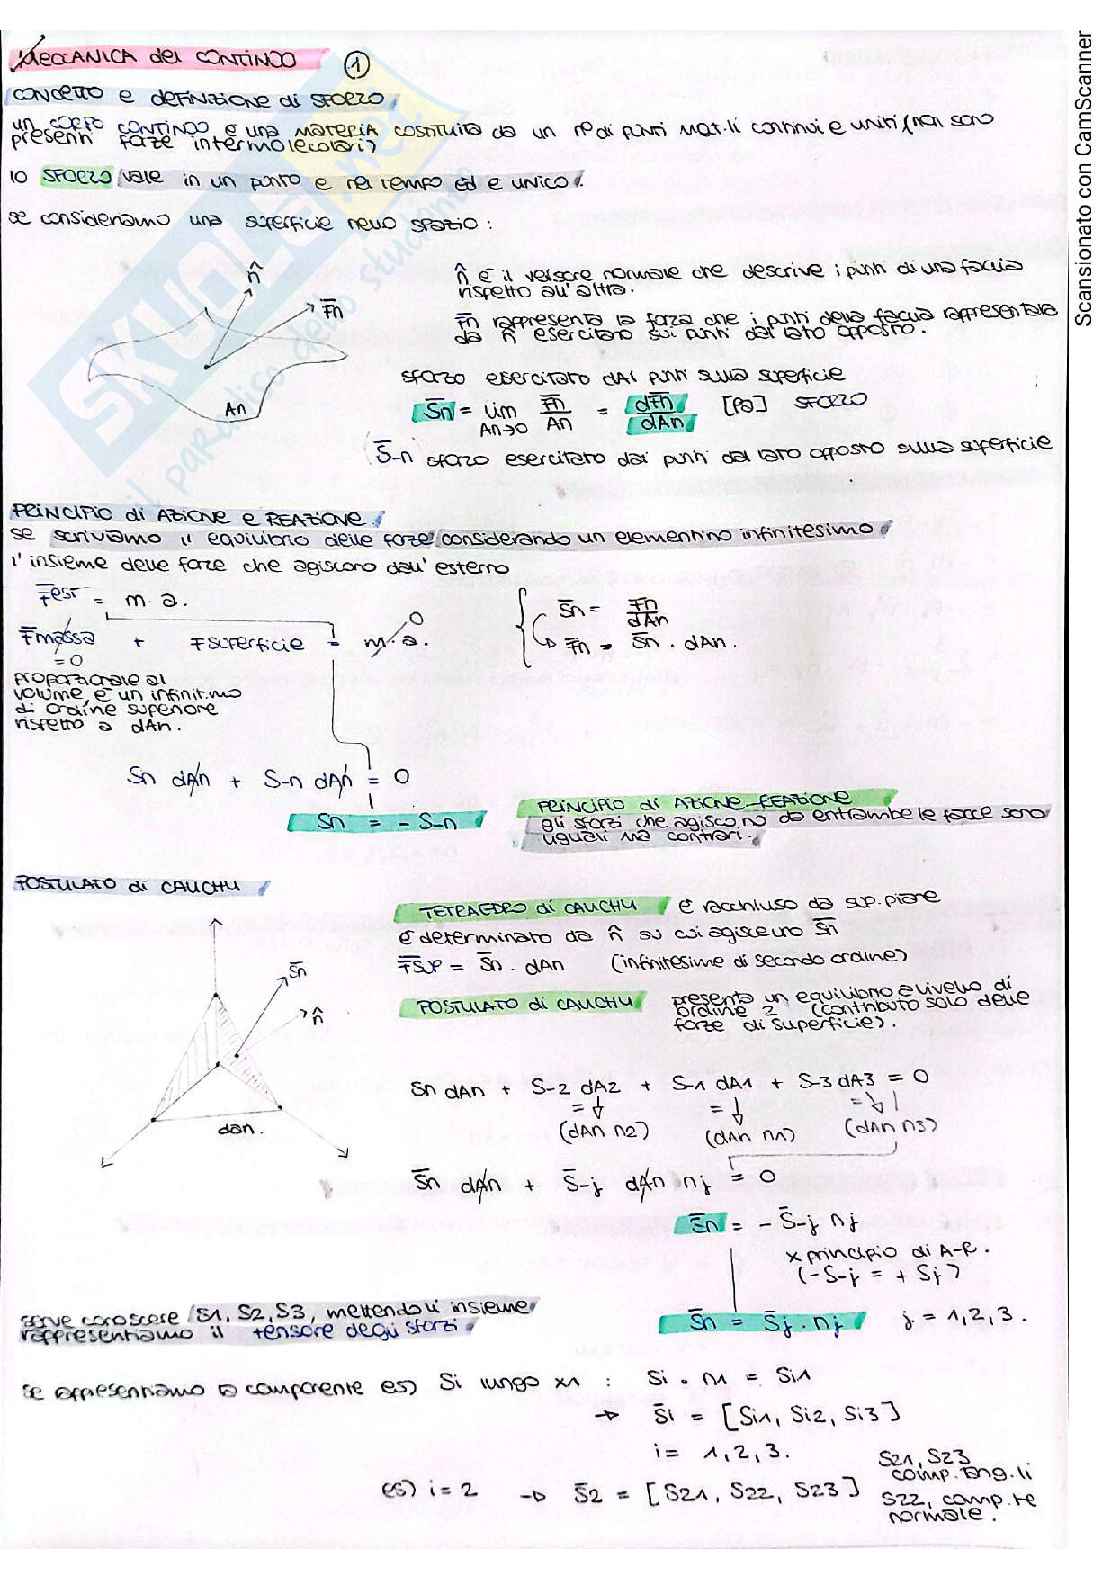 MECCANICA del CONTINUO ①
CONCETTO e DEFINIZIONE di SFORZO
un CORPO CONTINUO è una MATERIA costituita da un no di punti mat.li continui e uniti (non sono
presenti forze intermolecolari)
lo SFORZO vale in un punto e nel tempo ed è unico.
se consideriamo una superficie nello spazio:
n̂
F̄n
An
n̂ è il versore normale che descrive i punti di una faccia
rispetto all'altra.
F̄n rappresenta la forza che i punti della faccia rappresentata
da n̂ esercitano sui punti dal lato opposto.
sforzo esercitato dai punti sulla superficie
S̄n = lim An→0 F̄n/An = dF̄n/dAn [Pa] SFORZO
S̄-n sforzo esercitato dai punti dal lato opposto sulla superficie
PRINCIPIO di AZIONE e REAZIONE
se scriviamo l'equilibrio delle forze considerando un elementino infinitesimo
l'insieme delle forze che agiscono dall'esterno
F̄est = m·a.
F̄massa + Fsuperficie = m·a. 0
=0
proporzionale al
volume, è un infinit.mo
di ordine superiore
rispetto a dAn.
S̄n = F̄n/dAn
→ F̄n = S̄n · dAn.
Sn dAn + S-n dAn = 0
Sn = - S-n
PRINCIPIO di AZIONE-REAZIONE
gli sforzi che agiscono da entrambe le facce sono
uguali ma contrari.
POSTULATO di CAUCHY
S̄n
n̂
dan.
TETRAEDRO di CAUCHY è racchiuso da sup. piane
è determinato da n̂ su cui agisce uno S̄n
F̄sup = S̄n · dAn (infinitesime di secondo ordine)
POSTULATO di CAUCHY presenta un equilibrio a livello di
ordine 2 (contributo solo delle
forze di superficie).
Sn dAn + S-2 dA2 + S-1 dA1 + S-3 dA3 = 0
= ↓ = ↓ = ↓
(dAn n2) (dAn n1) (dAn n3)
S̄n dAn + S̄-j dAn nj = 0
S̄n = - S̄-j nj
x principio di A-R.
(-S-j = + Sj)
S̄n = S̄j · nj j = 1,2,3.
serve conoscere S1, S2, S3, mettendoli insieme
rappresentiamo il tensore degli sforzi
se rappresentiamo la componente es) Si lungo x1 : Si · n1 = Si1
→ S̄i = [Si1, Si2, Si3]
i = 1,2,3.
es) i=2 → S̄2 = [S21, S22, S23]
S21, S23
comp. tang.li
S22, comp.te
normale.
Scansionato con CamScanner
SKUOLA.net
il paradiso dello studente